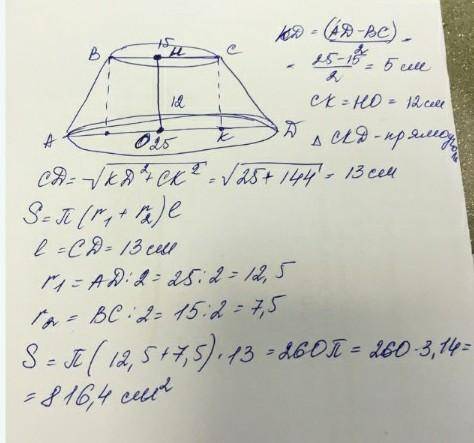 15
B H C
12
A O 25 K D
KD = (AD - BC) / 2 =
= 25 - 15 / 2 = 5 см
CK = HO = 12 см
△ CKD - прямоугол
CD = √KD² + CK² = √25 + 144 = 13 см
S = π (r₁ + r₂) l
l = CD = 13 см
r₁ = AD : 2 = 25 : 2 = 12,5
r₂ = BC : 2 = 15 : 2 = 7,5
S = π ( 12,5 + 7,5) · 13 = 260π = 260 · 3,14 =
= 816,4 см²